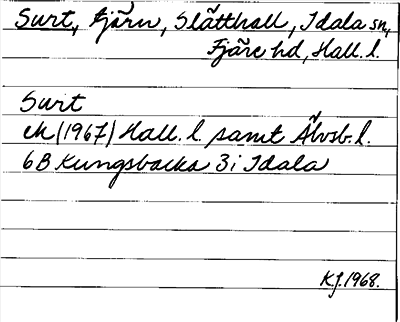 Surt, tjärn, Slätthall, Idala sn,
Fjäre hd, Hall. l.
Surt
ek (1967) Hall. l. samt Älvsb. l.
6B Kungsbacka 3i Idala
KJ. 1968.